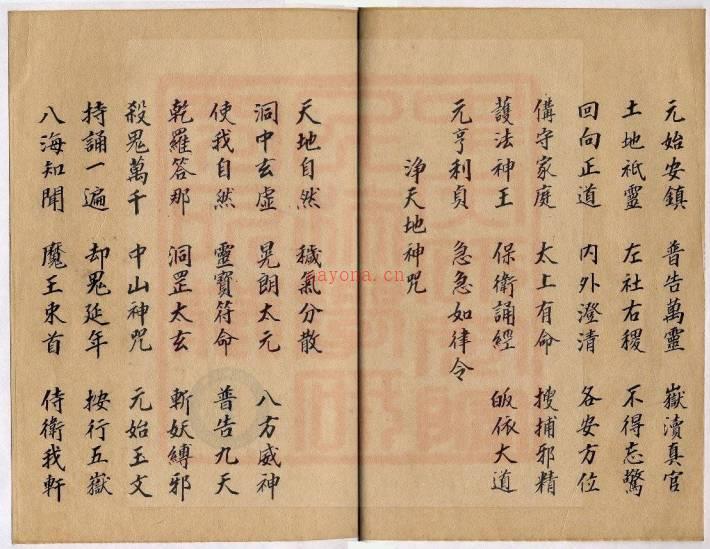 元始安鎮　普告萬靈　嶽瀆真官
土地祇靈　左社右稷　不得忘驚
回向正道　内外澄清　各安方位
俻守家庭　太上有命　搜捕邪精
護法神王　保衛誦經　皈依大道
元亨利貞　急急如律令
浄天地神咒
天地自然　穢氣分散
洞中玄虚　晃朗太元　八方威神
使我自然　靈寶符命　普告九天
乾羅答那　洞罡太玄　斬妖縛邪
殺鬼萬千　中山神咒　元始玉文
持誦一遍　却鬼延年　按行五嶽
八海知聞　魔王束首　侍衛我軒
ayona.cn